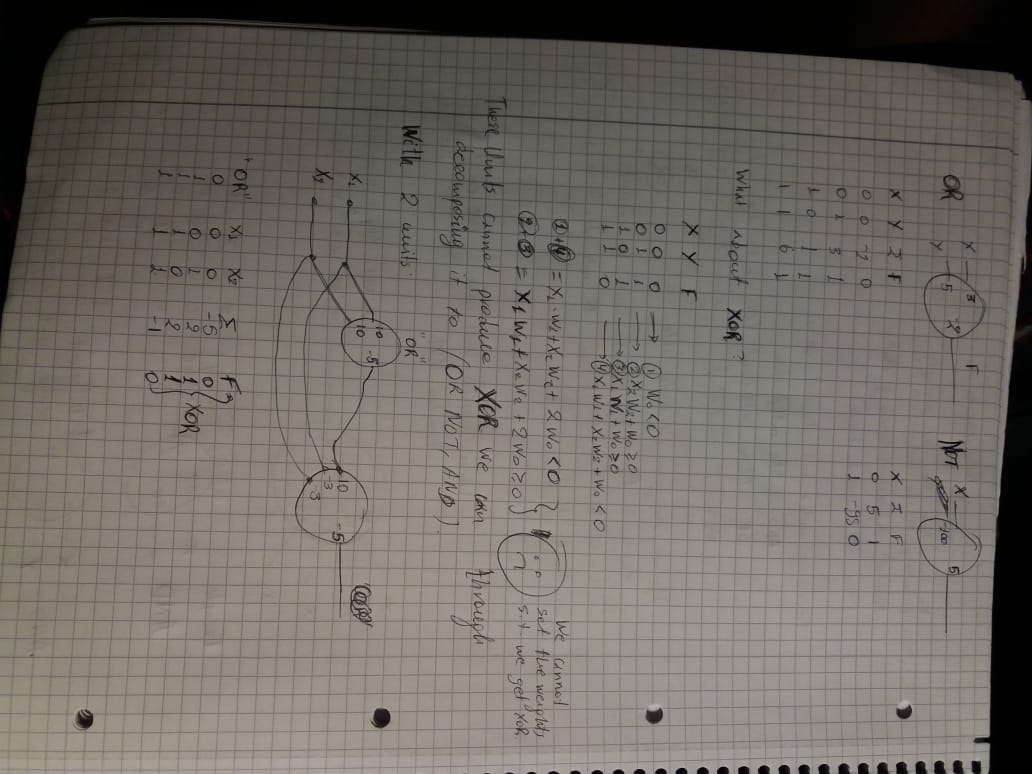 OR X 3 Y 5 -2 F
NOT X -100 5
X Y Σ F
0 0 -2 0
0 1 3 1
1 0 1 1
1 1 6 1
X Σ F
0 5 1
1 -95 0
What about XOR?
X Y F
0 0 0 → ① W₀ < 0
0 1 1 → ② X₂W₂ + W₀ ≥ 0
1 0 1 → ③ X₁W₁ + W₀ ≥ 0
1 1 0 → ④ X₁W₁ + X₂W₂ + W₀ < 0
①+④ = X₁·W₁ + X₂W₂ + 2W₀ < 0
②+③ = X₁W₁ + X₂W₂ + 2W₀ ≥ 0
We cannot
set the weights
s.t. we get XOR
These Units cannot produce XOR we can through
decomposing it to (OR NOT, AND)
With 2 units:
"OR"
X₁ 10 -5
X₂ 10
10 -5
-3
-3
"OR" X₁ X₂ Σ F
0 0 0 -5 0
1 0 1 2 1
1 1 0 2 1
1 1 1 -1 0
XOR